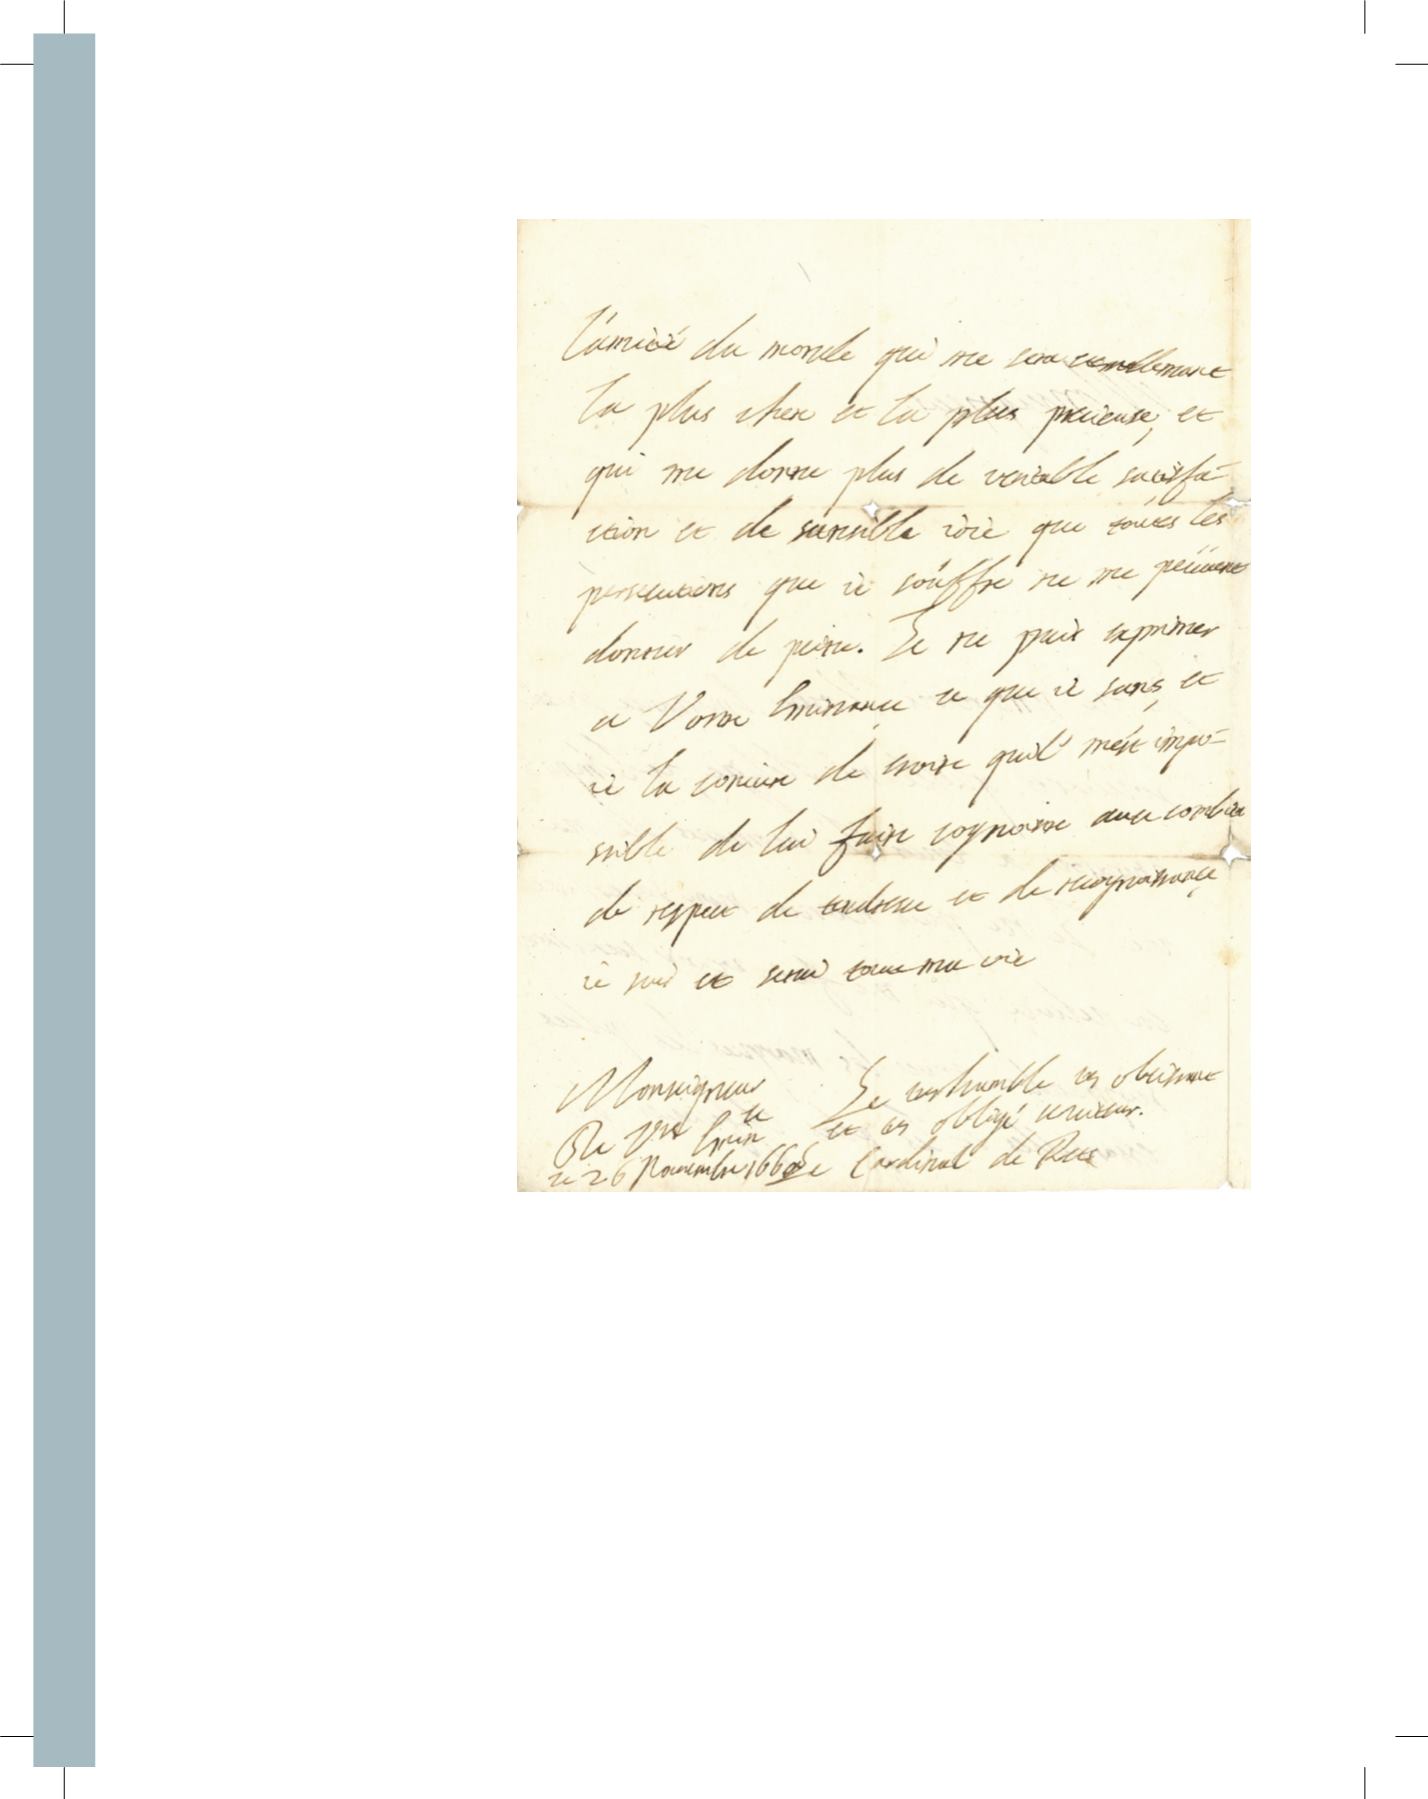 l'amitié du monde qui me sera
la plus chere et la plus pretieuse, et
qui me donne plus de veritable satisfa-
ction et de sansible ioie que toutes les
persecutions que ie souffre ne me peüuent
donner de peine. Je ne puis exprimer
a Vostre Eminance ce que ie sans, et
ie la coniure de croire quil m'est impo-
ssible de lui faire cognoistre auec combien
de respect de tendresse et de recognoissance
ie suis et serai toute ma vie
Monseigneur
De Vre Emin ce
Le treshumble tres obeissant
et tres obligé seruiteur.
ce 26 Nouembre 166
Le Cardinal de Rets